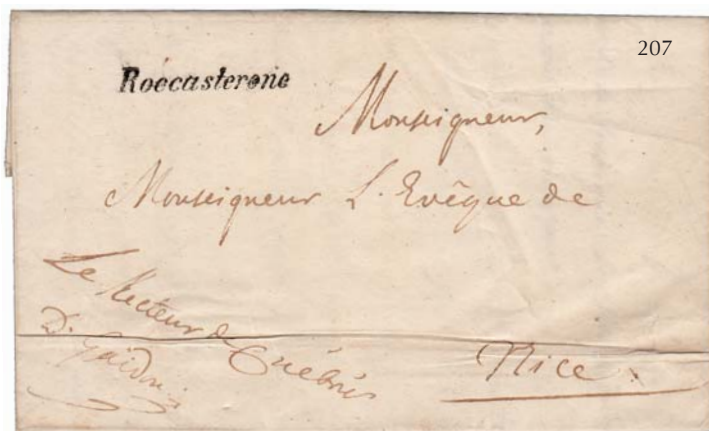 207
Roccasterone
Monseigneur,
Monseigneur L. Evêque de
Le Recteur de Cuébris
D. 
Nice.